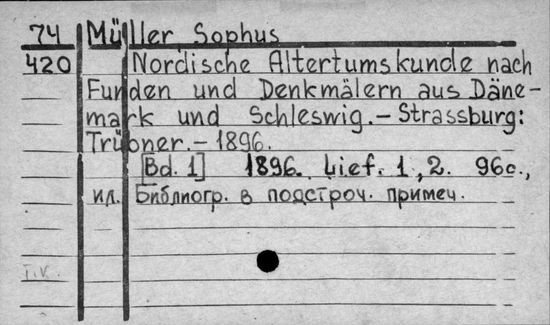 74 Müller Sophus
420 Nordische Altertumskunde nach
Funden und Denkmälern aus Däne-
mark und Schleswig. – Strassburg:
Trübner. – 1896.
[Bd. 1] 1896. Lief. 1, 2. 96с.,
ил. Библиогр. в подстроч. примеч.
T.V.